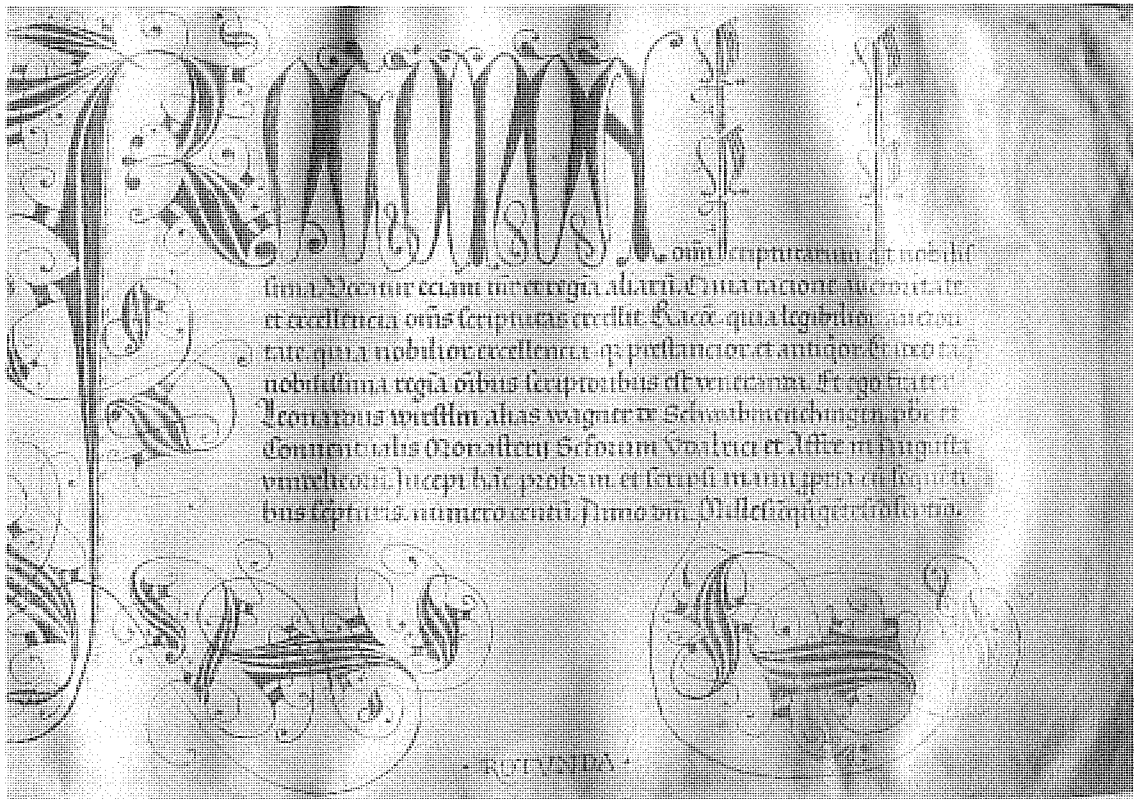 om̃ scripturarum est nobilis
sima. Vocatur eciam mr̃ et regĩa aliarũ. Quia racione auctoritate
et excellencia om̃s scripturas excellit. Racõe. quia legibilior. auctori
tate. quia nobilior. excellencia. q̃ prestancior. et antiq̃or. Et ideo
nobilissima regĩa oĩbus scriptoribus est veneranda. Et ego frater
Leonardus wirstlin alias wagner de Schwabmenchingen. pb̃r et
Conuentualis Monasterij Sctorum Vdalrici et Affre in Augusta
vindelicorũ. Incepi hãc probam. et scripsi manu ꝓpria cũ sequẽti
bus sc̃pturis. numero centũ. Anno dñi. Millesĩo q̃ngẽtesĩo septĩo.
· ROTVNDA ·